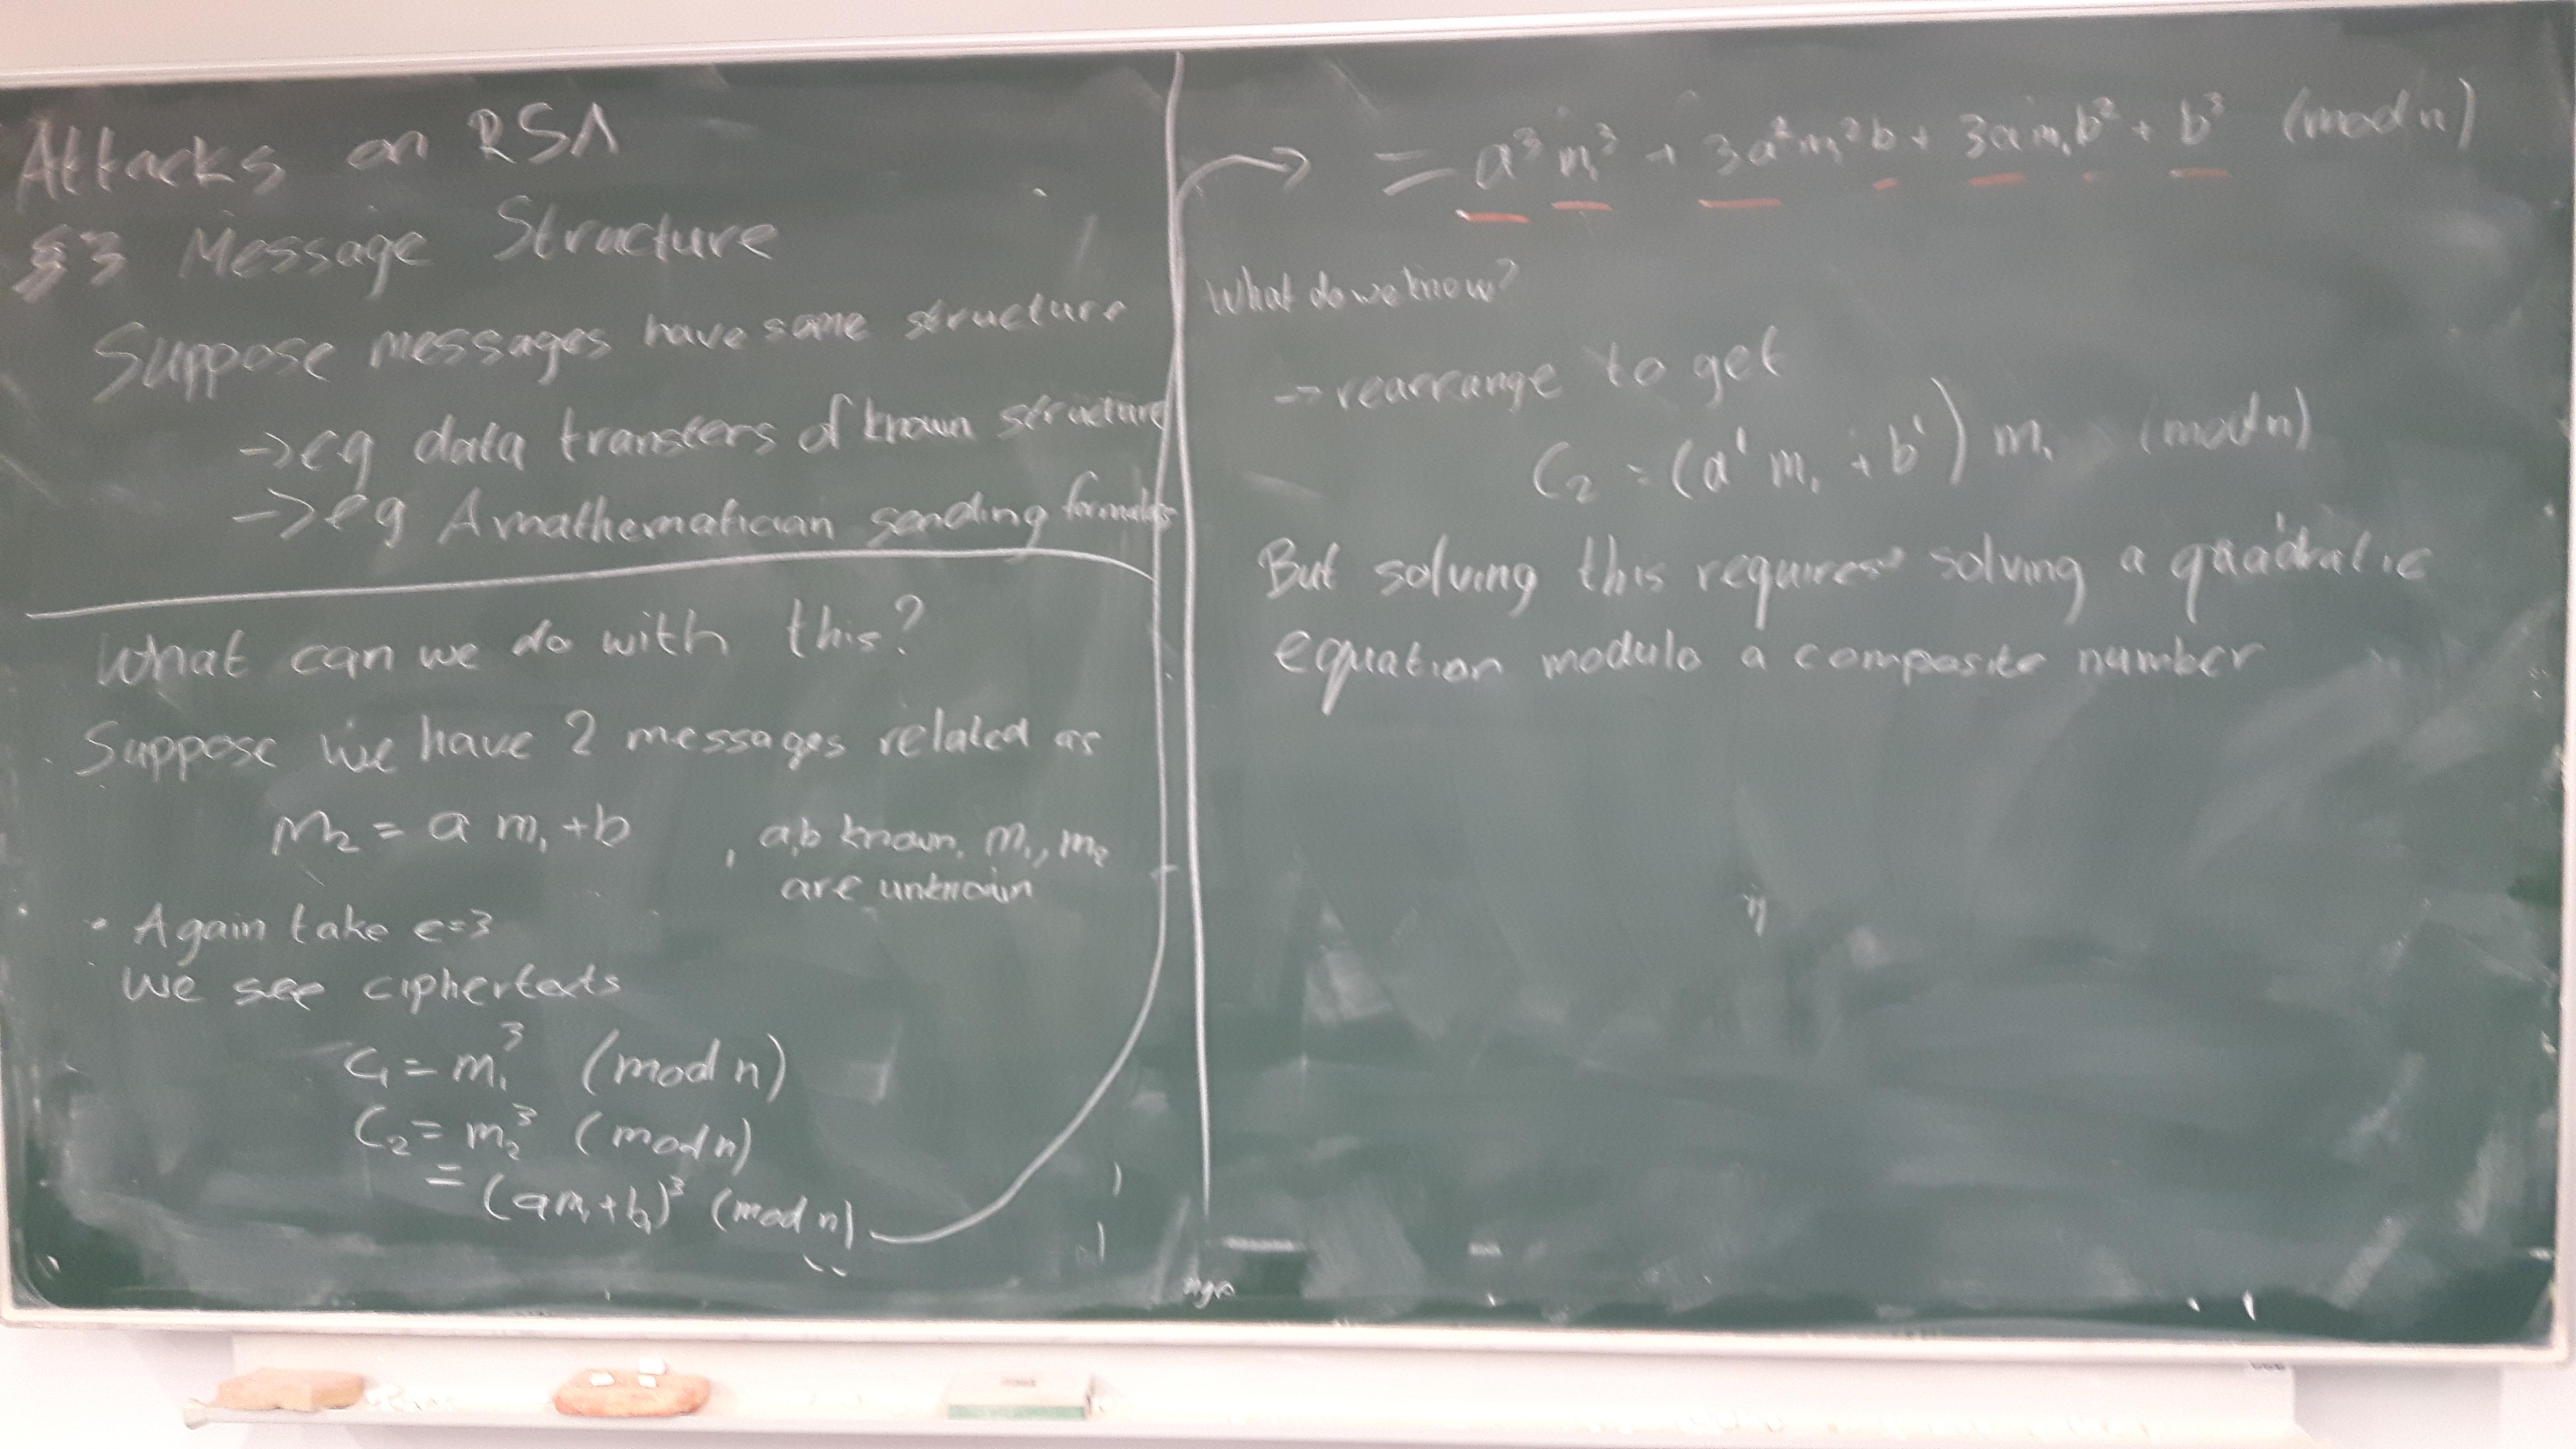 Attacks on RSA
§3 Message Structure
Suppose messages have some structure
→ eg data transfers of known structure
→ eg A mathematician sending formulas
What can we do with this?
Suppose we have 2 messages related as
m₂ = a m₁ + b , a,b known, m₁, m₂
are unknown
• Again take e=3
we see ciphertexts
C₁ = m₁³ (mod n)
C₂ = m₂³ (mod n)
= (am₁+b)³ (mod n)
→ = a³m₁³ + 3a²m₁²b + 3am₁b² + b³ (mod n)
What do we know?
→ rearrange to get
C₂ = (a' m₁ + b') m₁ (mod n)
But solving this requires solving a quadratic
equation modulo a composite number